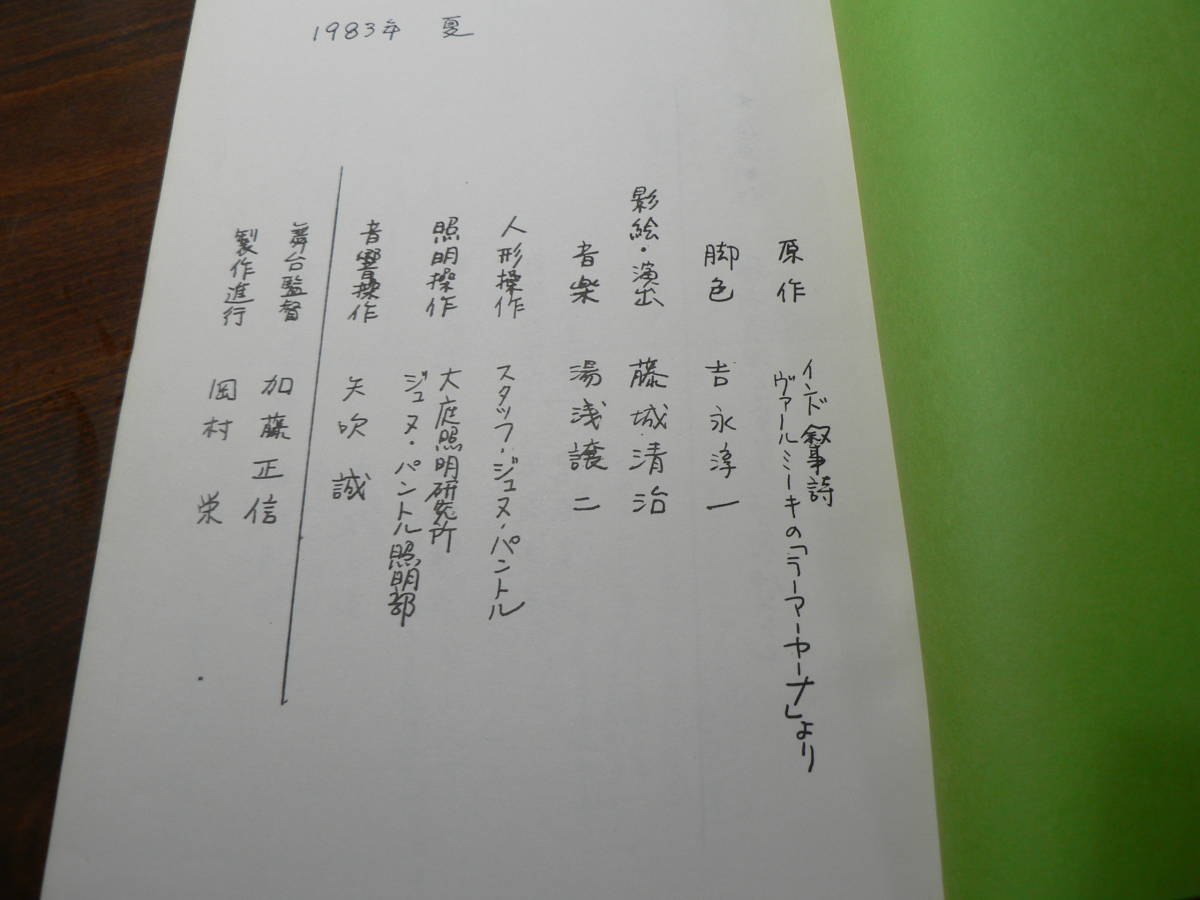 1983年 夏
原作 インド叙事詩
ヴァールミーキの「ラーマーヤーナ」より
脚色 吉永淳一
影絵・演出 藤城清治
音楽 湯浅譲二
人形操作 スタッフ・ジュヌ・パントル
照明操作 大庭照明研究所
ジュヌ・パントル照明部
音響操作 矢吹 誠
舞台監督 加藤正信
製作進行 岡村 栄